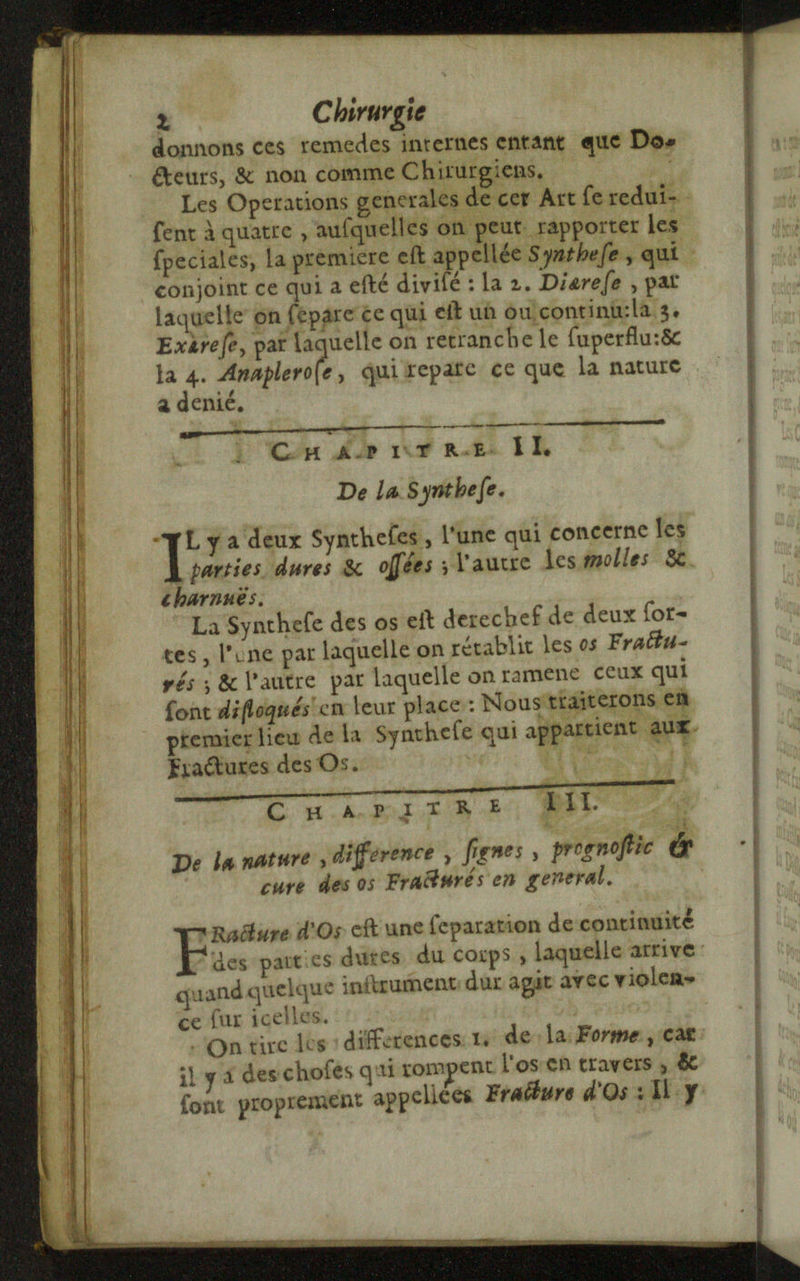 2 Chirurgie
donnons ces remedes internes entant que Do-
cteurs, & non comme Chirurgiens.
Les Operations generales de cet Art ſe redui-
ſent à quatre , auſquelles on peut rapporter les
ſpeciales, la premiere eſt appellée Syntheſe , qui
conjoint ce qui a eſté diviſé : la 2. Diæreſe , par
laquelle on ſepare ce qui eſt un ou continu:la 3.
Exæreſe, par laquelle on retranche le ſuperflu:&
la 4. Anapleroſe, qui repare ce que la nature
a denié.
CHAPITRE II.
De la Syntheſe.
IL y a deux Syntheſes , l'une qui concerne les
parties dures & oſſées ; l'autre les molles &
charnuës.
La Syntheſe des os eſt derechef de deux ſor-
tes , l'une par laquelle on rétablit les os Fractu-
rés ; & l'autre par laquelle on ramene ceux qui
ſont diſloqués en leur place : Nous traiterons en
premier lieu de la Syntheſe qui appartient aux
Fractures des Os.
CHAPITRE III.
De la nature , difference , ſignes , prognoſtic &
cure des os Fracturés en general.
FRacture d'Os eſt une ſeparation de continuité
des parties dures du corps , laquelle arrive
quand quelque inſtrument dur agit avec violen-
ce ſur icelles.
On tire les differences 1. de la Forme , car
il y a des choſes qui rompent l'os en travers , &
ſont proprement appellées Fracture d'Os : Il y